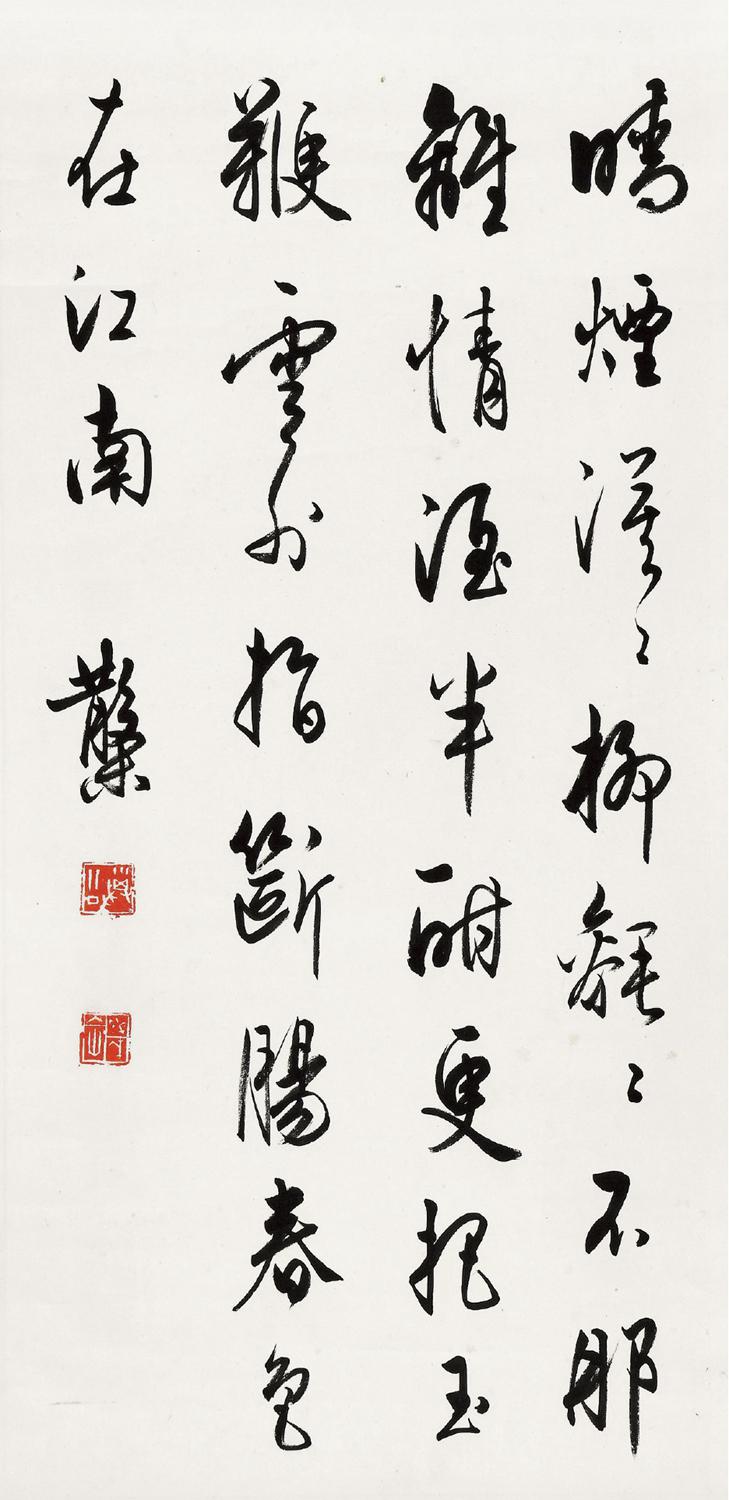 晴煙漠〻柳毿〻不那
離情酒半酣更把玉
鞭雲外指斷腸春色
在江南